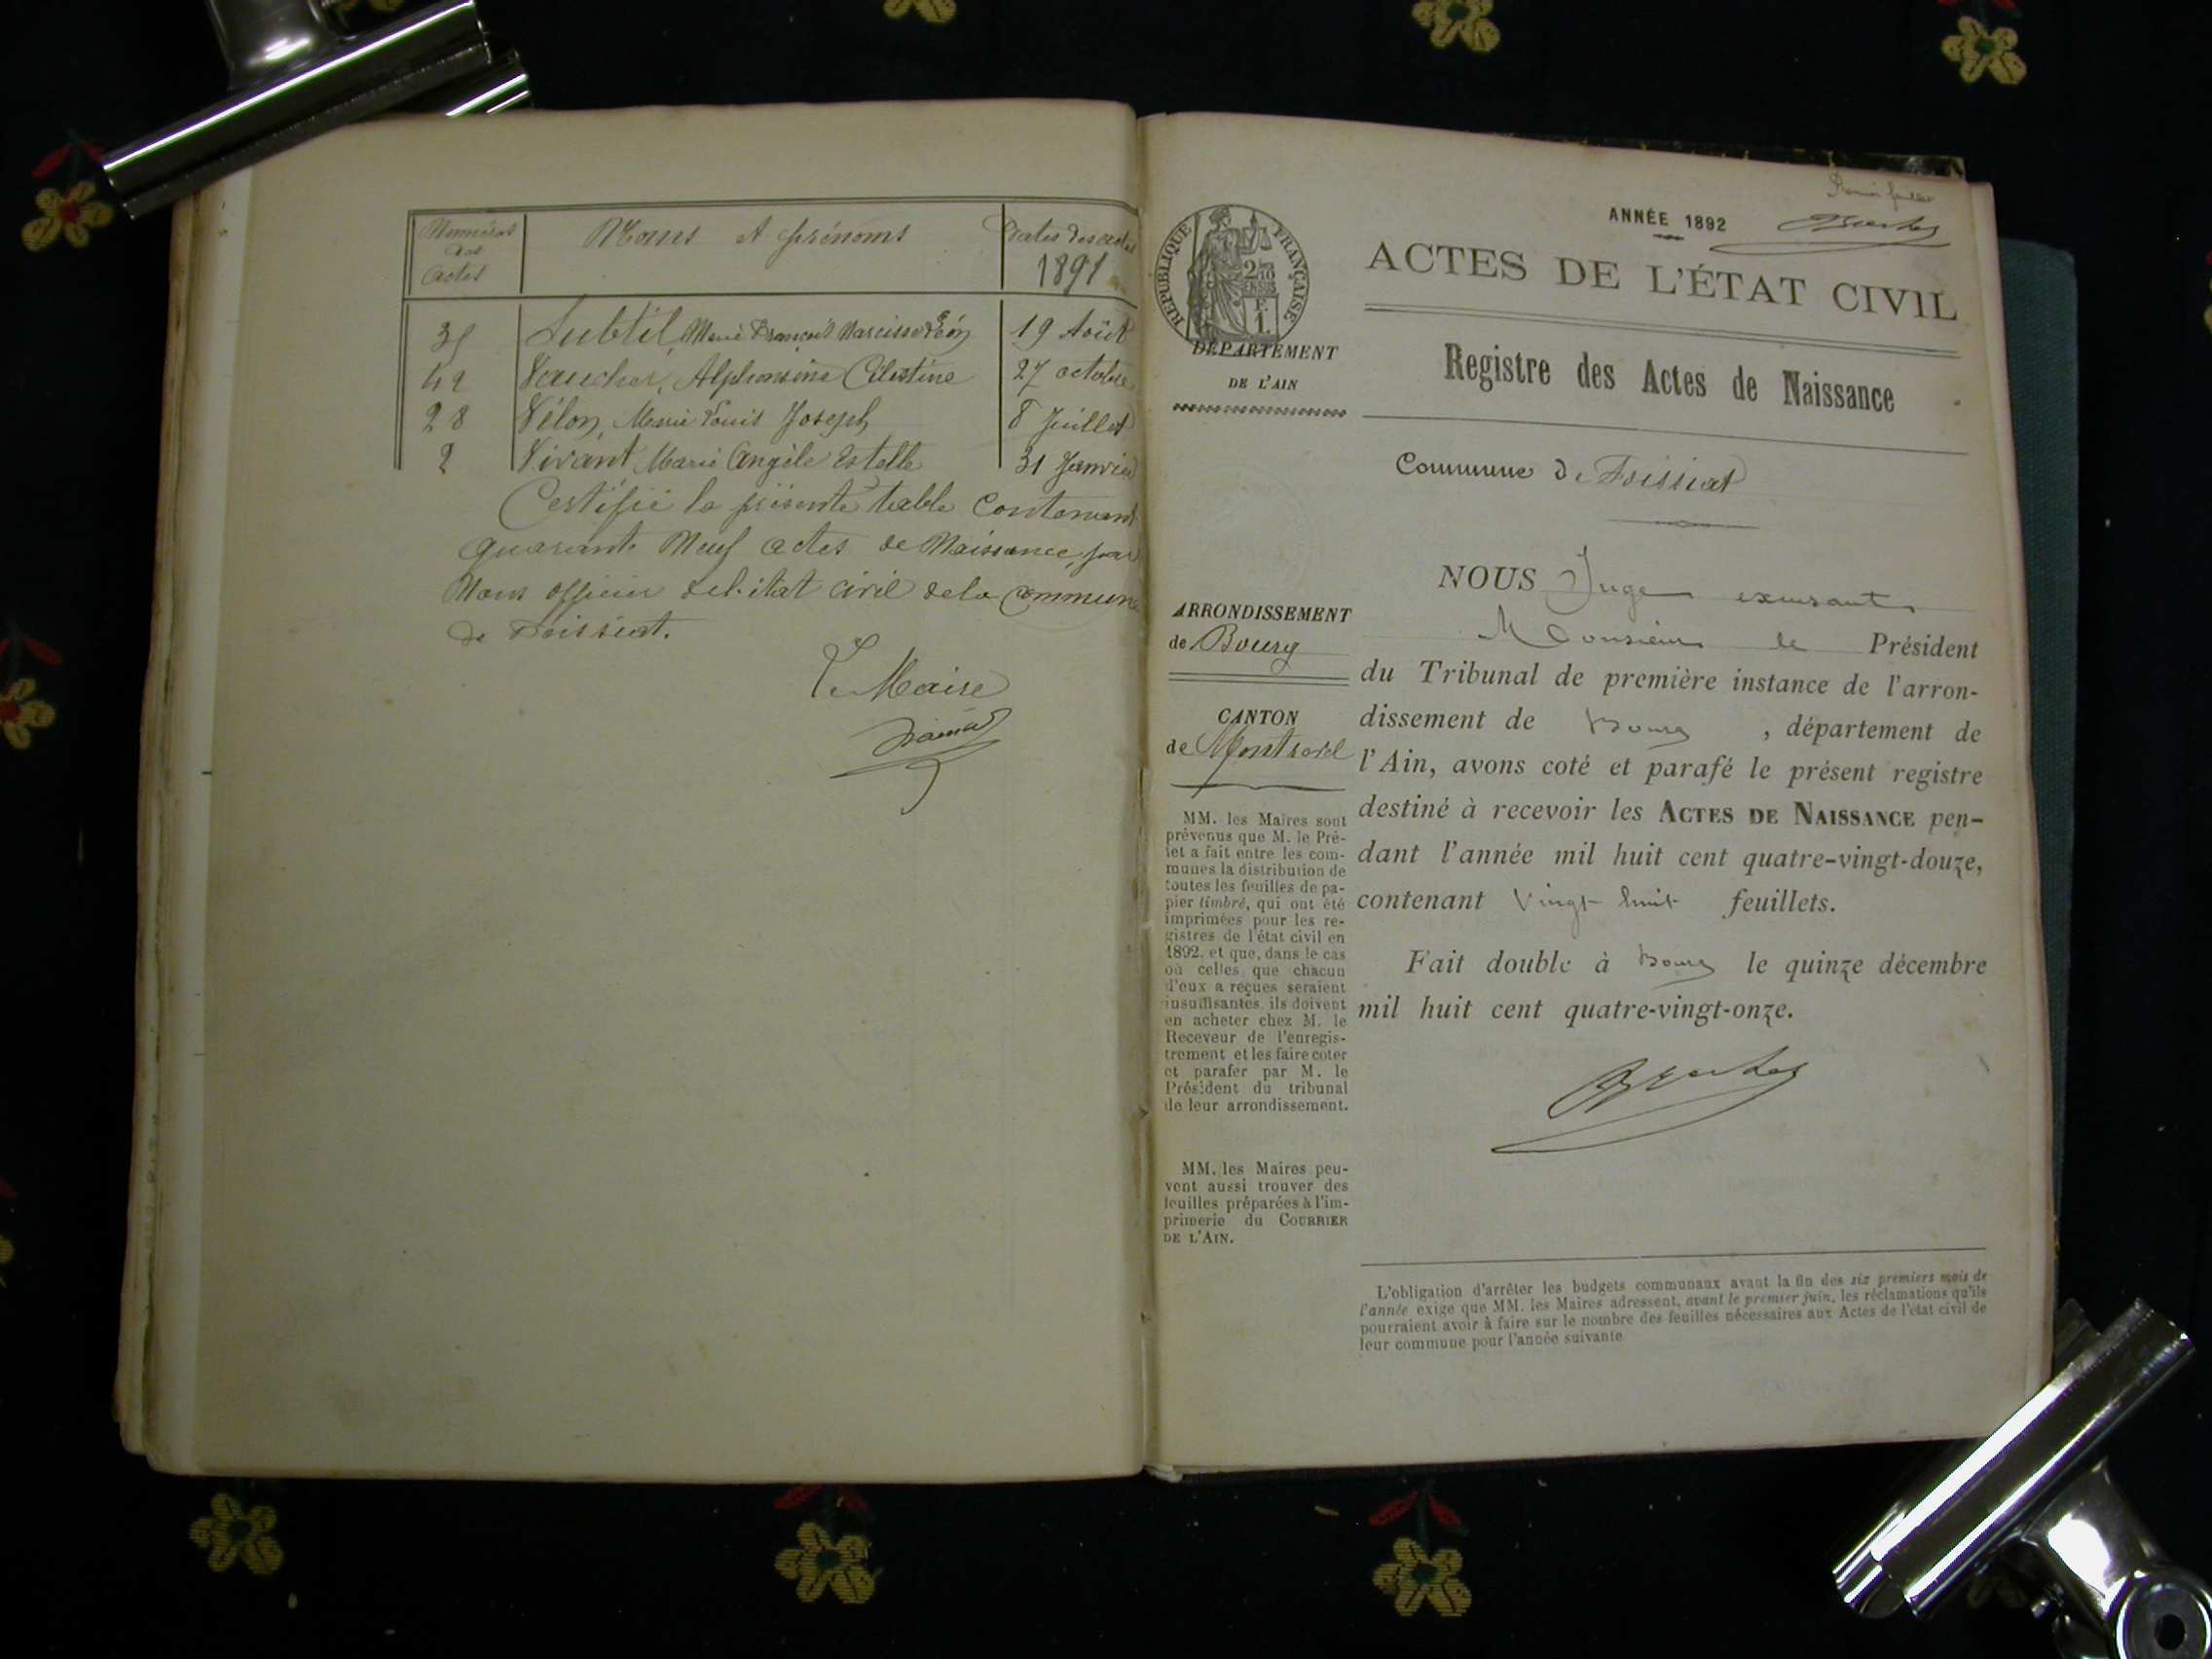 Numéros
des
Actes
Noms et prénoms
Dates des actes
1891
35 Subtil, Marie François Narcisse Léon 19 Août
42 Vaucher, Alphonsine Célestine 27 octobre
28 Vélon, Marie Louis Joseph 8 Juillet
2 Vivant Marie Angèle Estelle 31 Janvier
Certifié la présente table Contenant
quarante Neuf actes de Naissance, par
Nous officier de l'état civil de la Commune
de Foissiat.
Le Maire
Premier feuillet
ANNÉE 1892
ACTES DE L'ÉTAT CIVIL
Registre des Actes de Naissance
RÉPUBLIQUE FRANÇAISE
2/10 EN SUS
F.
1.
DÉPARTEMENT
DE L'AIN
Commune de Foissiat
ARRONDISSEMENT
de Bourg
CANTON
de Montrevel
MM. les Maires sont
prévenus que M. le Pré-
fet a fait entre les com-
munes la distribution de
toutes les feuilles de pa-
pier timbré, qui ont été
imprimées pour les re-
gistres de l'état civil en
1892, et que, dans le cas
où celles que chacun
d'eux a reçues seraient
insuffisantes, ils doivent
en acheter chez M. le
Receveur de l'enregis-
trement et les faire coter
et parafer par M. le
Président du tribunal
de leur arrondissement.
MM. les Maires peu-
vent aussi trouver des
feuilles préparées à l'im-
primerie du COURRIER
DE L'AIN.
NOUS Juge
Monsieur le Président
du Tribunal de première instance de l'arron-
dissement de Bourg, département de
l'Ain, avons coté et parafé le présent registre
destiné à recevoir les ACTES DE NAISSANCE pen-
dant l'année mil huit cent quatre-vingt-douze,
contenant Vingt huit feuillets.
Fait double à Bourg le quinze décembre
mil huit cent quatre-vingt-onze.
L'obligation d'arrêter les budgets communaux avant la fin des six premiers mois de
l'année exige que MM. les Maires adressent, avant le premier juin, les réclamations qu'ils
pourraient avoir à faire sur le nombre des feuilles nécessaires aux Actes de l'état civil de
leur commune pour l'année suivante